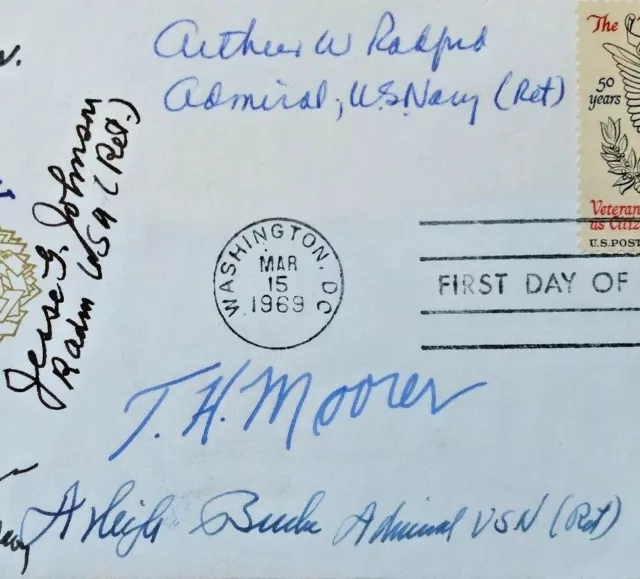 Arthur W Radford
Admiral, U.S. Navy (Ret)
The
50
years
Veteran
as Citiz
U.S. POST
Jesse G. Johnson
Radm USN (Ret.)
WASHINGTON, DC
MAR
15
1969
FIRST DAY OF
T. H. Moorer
Arleigh Burke Admiral USN (Ret)